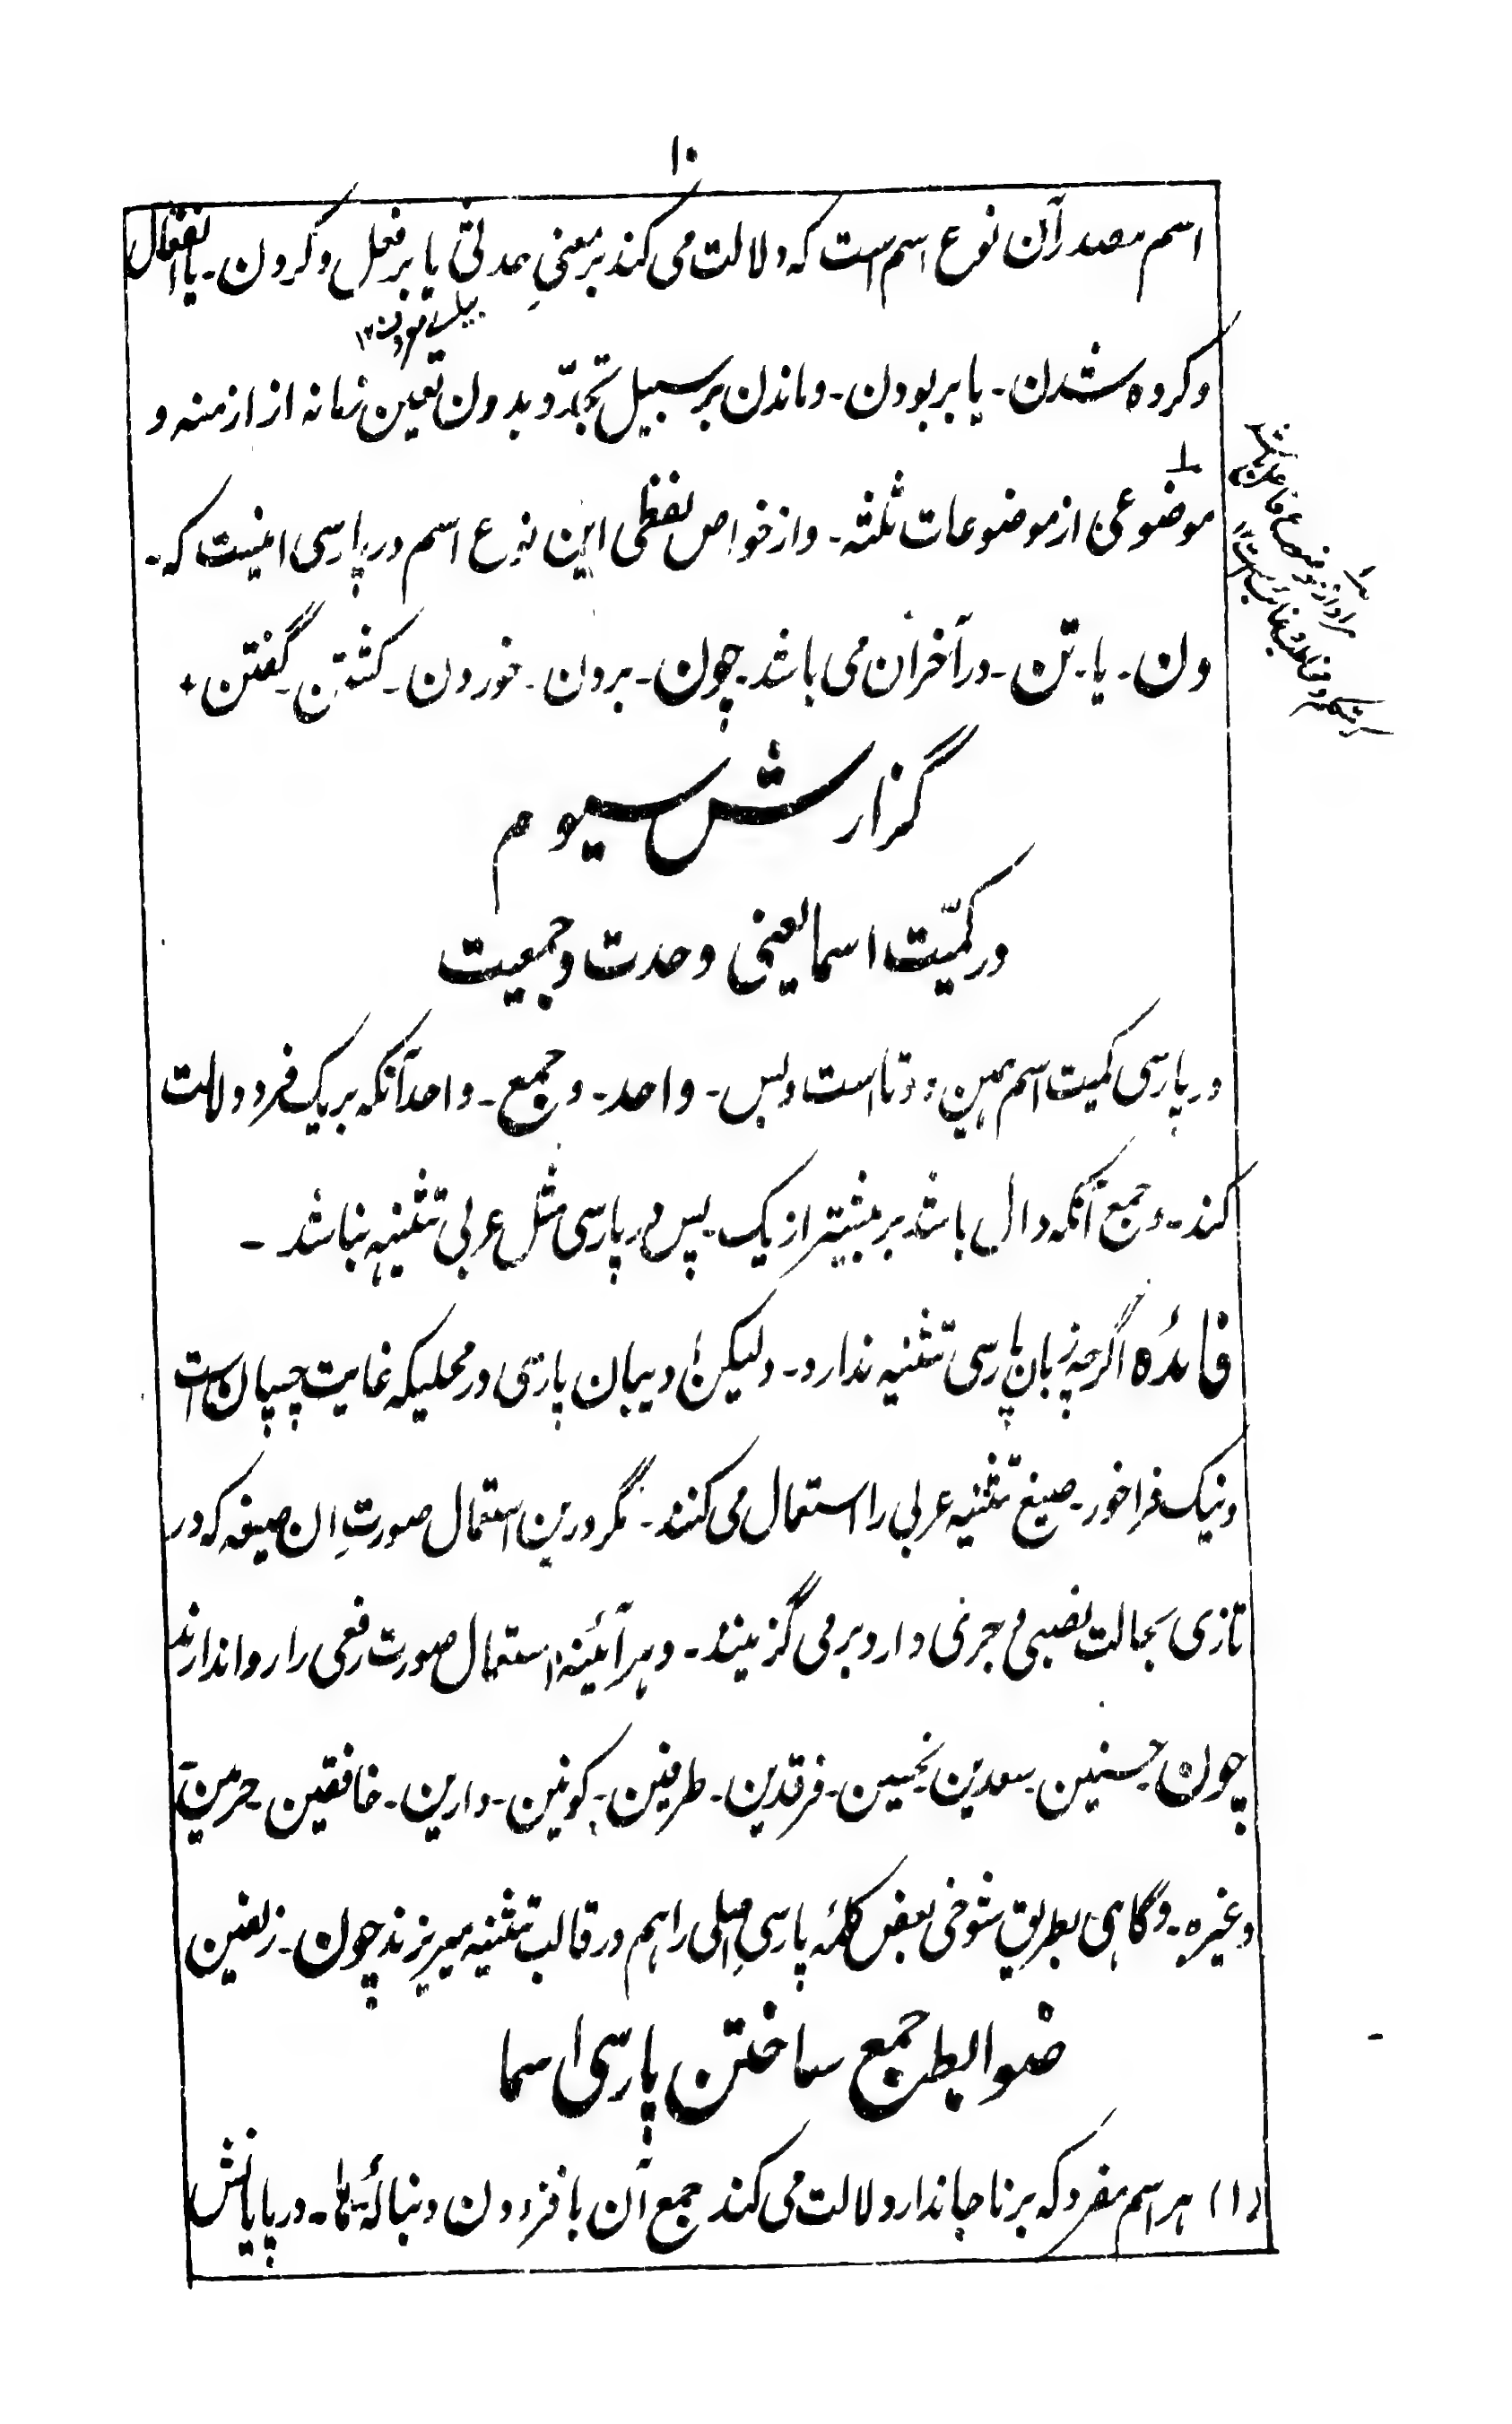 ۱۰
اسم مصدر آن نوع اسم است که دلالت می کند بر معنیِ حدثی یا بر فعل و کردن - یا انفعال
و کرده شدن - یا بر بودن - و ماندن بر سبیل تجدّد و بدون تعین زمانه از ازمنه و
موضوعی از موضوعات ثلثه - و از خواص لفظی این نوع اسم در پارسی اینست که -
دن - یا - تن - در آخر آن می باشد - چون - بردن - خوردن - کشتن - گفتن +
گزارش سیوم
در کمّیت اسما یعنی وحدت و جمعیت
در پارسی کمیت اسم همین دوتا است و بس - واحد - و جمع - واحد آنکه بر یک فرد دلالت
کند - و جمع آنکه دال باشد بر بیشتر از یک - پس در پارسی مثل عربی تثنیه نباشد -
فائده اگرچه زبان پارسی تثنیه ندارد - ولیکن ادیبان پارسی در محلیکه غایت چسپان است
و نیک فراخور - صیغ تثنیه عربی را استعمال می کنند - مگر درین استعمال صورتِ ان صیغه که در
تازی بحالت نصبی و جری دارد بر می گزینند - و هر آئینه استعمال صورت رفعی را روا ندارند
چون حسنین - سعدین - نحسین - فرقدین - طرفین - کونین - دارین - خافقین - حرمین
و غیره - و گاهی بطریق شوخی بعض کلمۂ پارسیِ اصلی را هم در قالب تثنیه میریزند چون - زلفین
ضوابط جمع ساختن پارسی اسما
(۱) هر اسم مفرد که بر نا جاندار دلالت می کند جمع آن با فزودن دنبالۂ ها - در پایانش